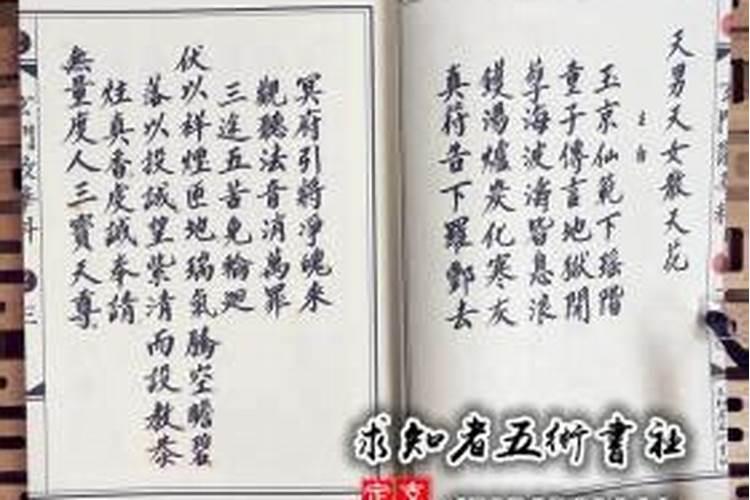 天男天女散天花
玉京仙範下瑤階
童子傳言地獄開
孽海波濤皆息浪
鑊湯爐炭化寒灰
真符告下羅酆去
冥府引將凈魄來
觀聽法音消萬罪
三途五苦免輪迴
伏以祥煙匝地瑞氣騰空瞻碧
落以投誠望紫清而設教恭
炷真香虔誠奉請
無量度人三寶天尊
求知者五術書社